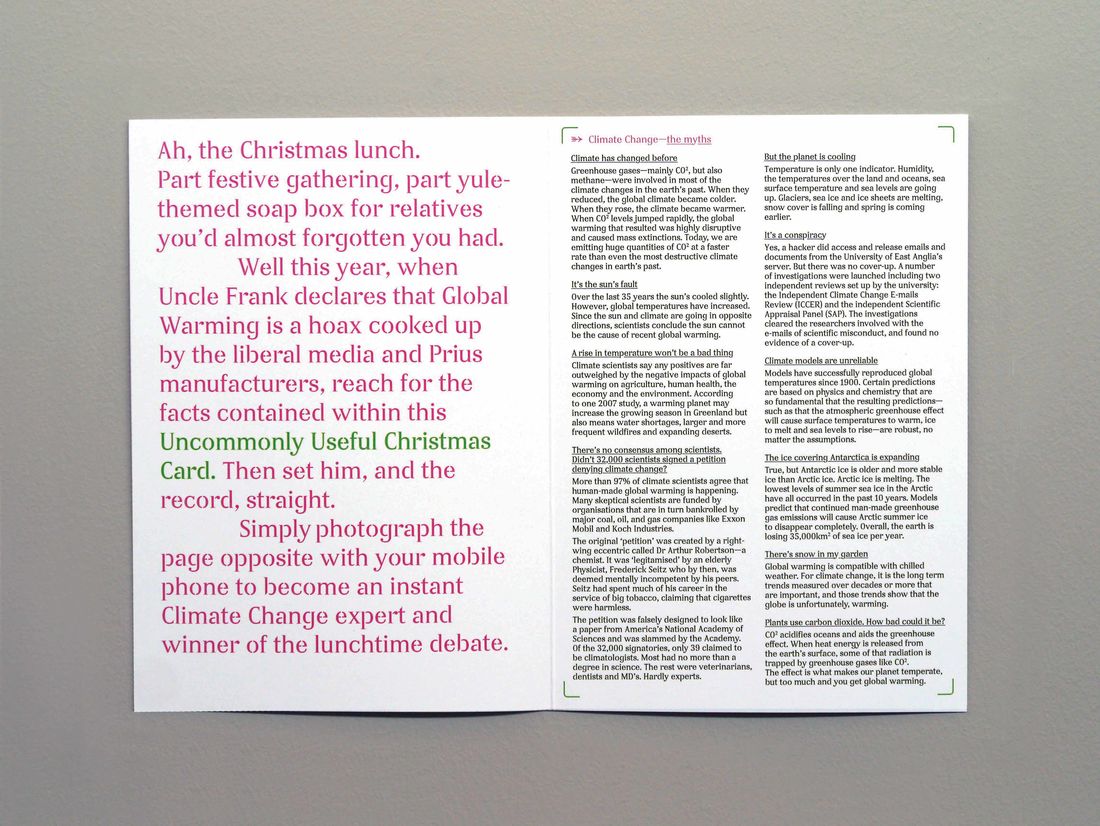 Ah, the Christmas lunch.
Part festive gathering, part yule-
themed soap box for relatives
you'd almost forgotten you had.
Well this year, when
Uncle Frank declares that Global
Warming is a hoax cooked up
by the liberal media and Prius
manufacturers, reach for the
facts contained within this
Uncommonly Useful Christmas
Card. Then set him, and the
record, straight.
Simply photograph the
page opposite with your mobile
phone to become an instant
Climate Change expert and
winner of the lunchtime debate.
Climate Change—the myths
Climate has changed before
Greenhouse gases—mainly CO², but also
methane—were involved in most of the
climate changes in the earth's past. When they
reduced, the global climate became colder.
When they rose, the climate became warmer.
When CO² levels jumped rapidly, the global
warming that resulted was highly disruptive
and caused mass extinctions. Today, we are
emitting huge quantities of CO² at a faster
rate than even the most destructive climate
changes in earth's past.
It's the sun's fault
Over the last 35 years the sun's cooled slightly.
However, global temperatures have increased.
Since the sun and climate are going in opposite
directions, scientists conclude the sun cannot
be the cause of recent global warming.
A rise in temperature won't be a bad thing
Climate scientists say any positives are far
outweighed by the negative impacts of global
warming on agriculture, human health, the
economy and the environment. According
to one 2007 study, a warming planet may
increase the growing season in Greenland but
also means water shortages, larger and more
frequent wildfires and expanding deserts.
There's no consensus among scientists.
Didn't 32,000 scientists signed a petition
denying climate change?
More than 97% of climate scientists agree that
human-made global warming is happening.
Many skeptical scientists are funded by
organisations that are in turn bankrolled by
major coal, oil, and gas companies like Exxon
Mobil and Koch Industries.
The original 'petition' was created by a right-
wing eccentric called Dr Arthur Robertson—a
chemist. It was 'legitimised' by an elderly
Physicist, Frederick Seitz who by then, was
deemed mentally incompetent by his peers.
Seitz had spent much of his career in the
service of big tobacco, claiming that cigarettes
were harmless.
The petition was falsely designed to look like
a paper from America's National Academy of
Sciences and was slammed by the Academy.
Of the 32,000 signatories, only 39 claimed to
be climatologists. Most had no more than a
degree in science. The rest were veterinarians,
dentists and MD's. Hardly experts.
But the planet is cooling
Temperature is only one indicator. Humidity,
the temperatures over the land and oceans, sea
surface temperature and sea levels are going
up. Glaciers, sea ice and ice sheets are melting,
snow cover is falling and spring is coming
earlier.
It's a conspiracy
Yes, a hacker did access and release emails and
documents from the University of East Anglia's
server. But there was no cover-up. A number
of investigations were launched including two
independent reviews set up by the university:
the Independent Climate Change E-mails
Review (ICCER) and the Independent Scientific
Appraisal Panel (SAP). The investigations
cleared the researchers involved with the
e-mails of scientific misconduct, and found no
evidence of a cover-up.
Climate models are unreliable
Models have successfully reproduced global
temperatures since 1900. Certain predictions
are based on physics and chemistry that are
so fundamental that the resulting predictions—
such as that the atmospheric greenhouse effect
will cause surface temperatures to warm, ice
to melt and sea levels to rise—are robust, no
matter the assumptions.
The ice covering Antarctica is expanding
True, but Antarctic ice is older and more stable
ice than Arctic ice. Arctic ice is melting. The
lowest levels of summer sea ice in the Arctic
have all occurred in the past 10 years. Models
predict that continued man-made greenhouse
gas emissions will cause Arctic summer ice
to disappear completely. Overall, the earth is
losing 35,000km² of sea ice per year.
There's snow in my garden
Global warming is compatible with chilled
weather. For climate change, it is the long term
trends measured over decades or more that
are important, and those trends show that the
globe is unfortunately, warming.
Plants use carbon dioxide. How bad could it be?
CO² acidifies oceans and aids the greenhouse
effect. When heat energy is released from
the earth's surface, some of that radiation is
trapped by greenhouse gases like CO².
The effect is what makes our planet temperate,
but too much and you get global warming.